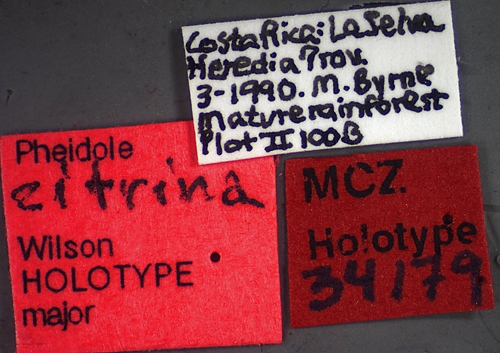 Costa Rica: La Selva
Heredia Prov.
3-1990. M. Byrne
mature rainforest
Plot II 100B
Pheidole
citrina
Wilson
HOLOTYPE
major
MCZ.
Holotype
34179